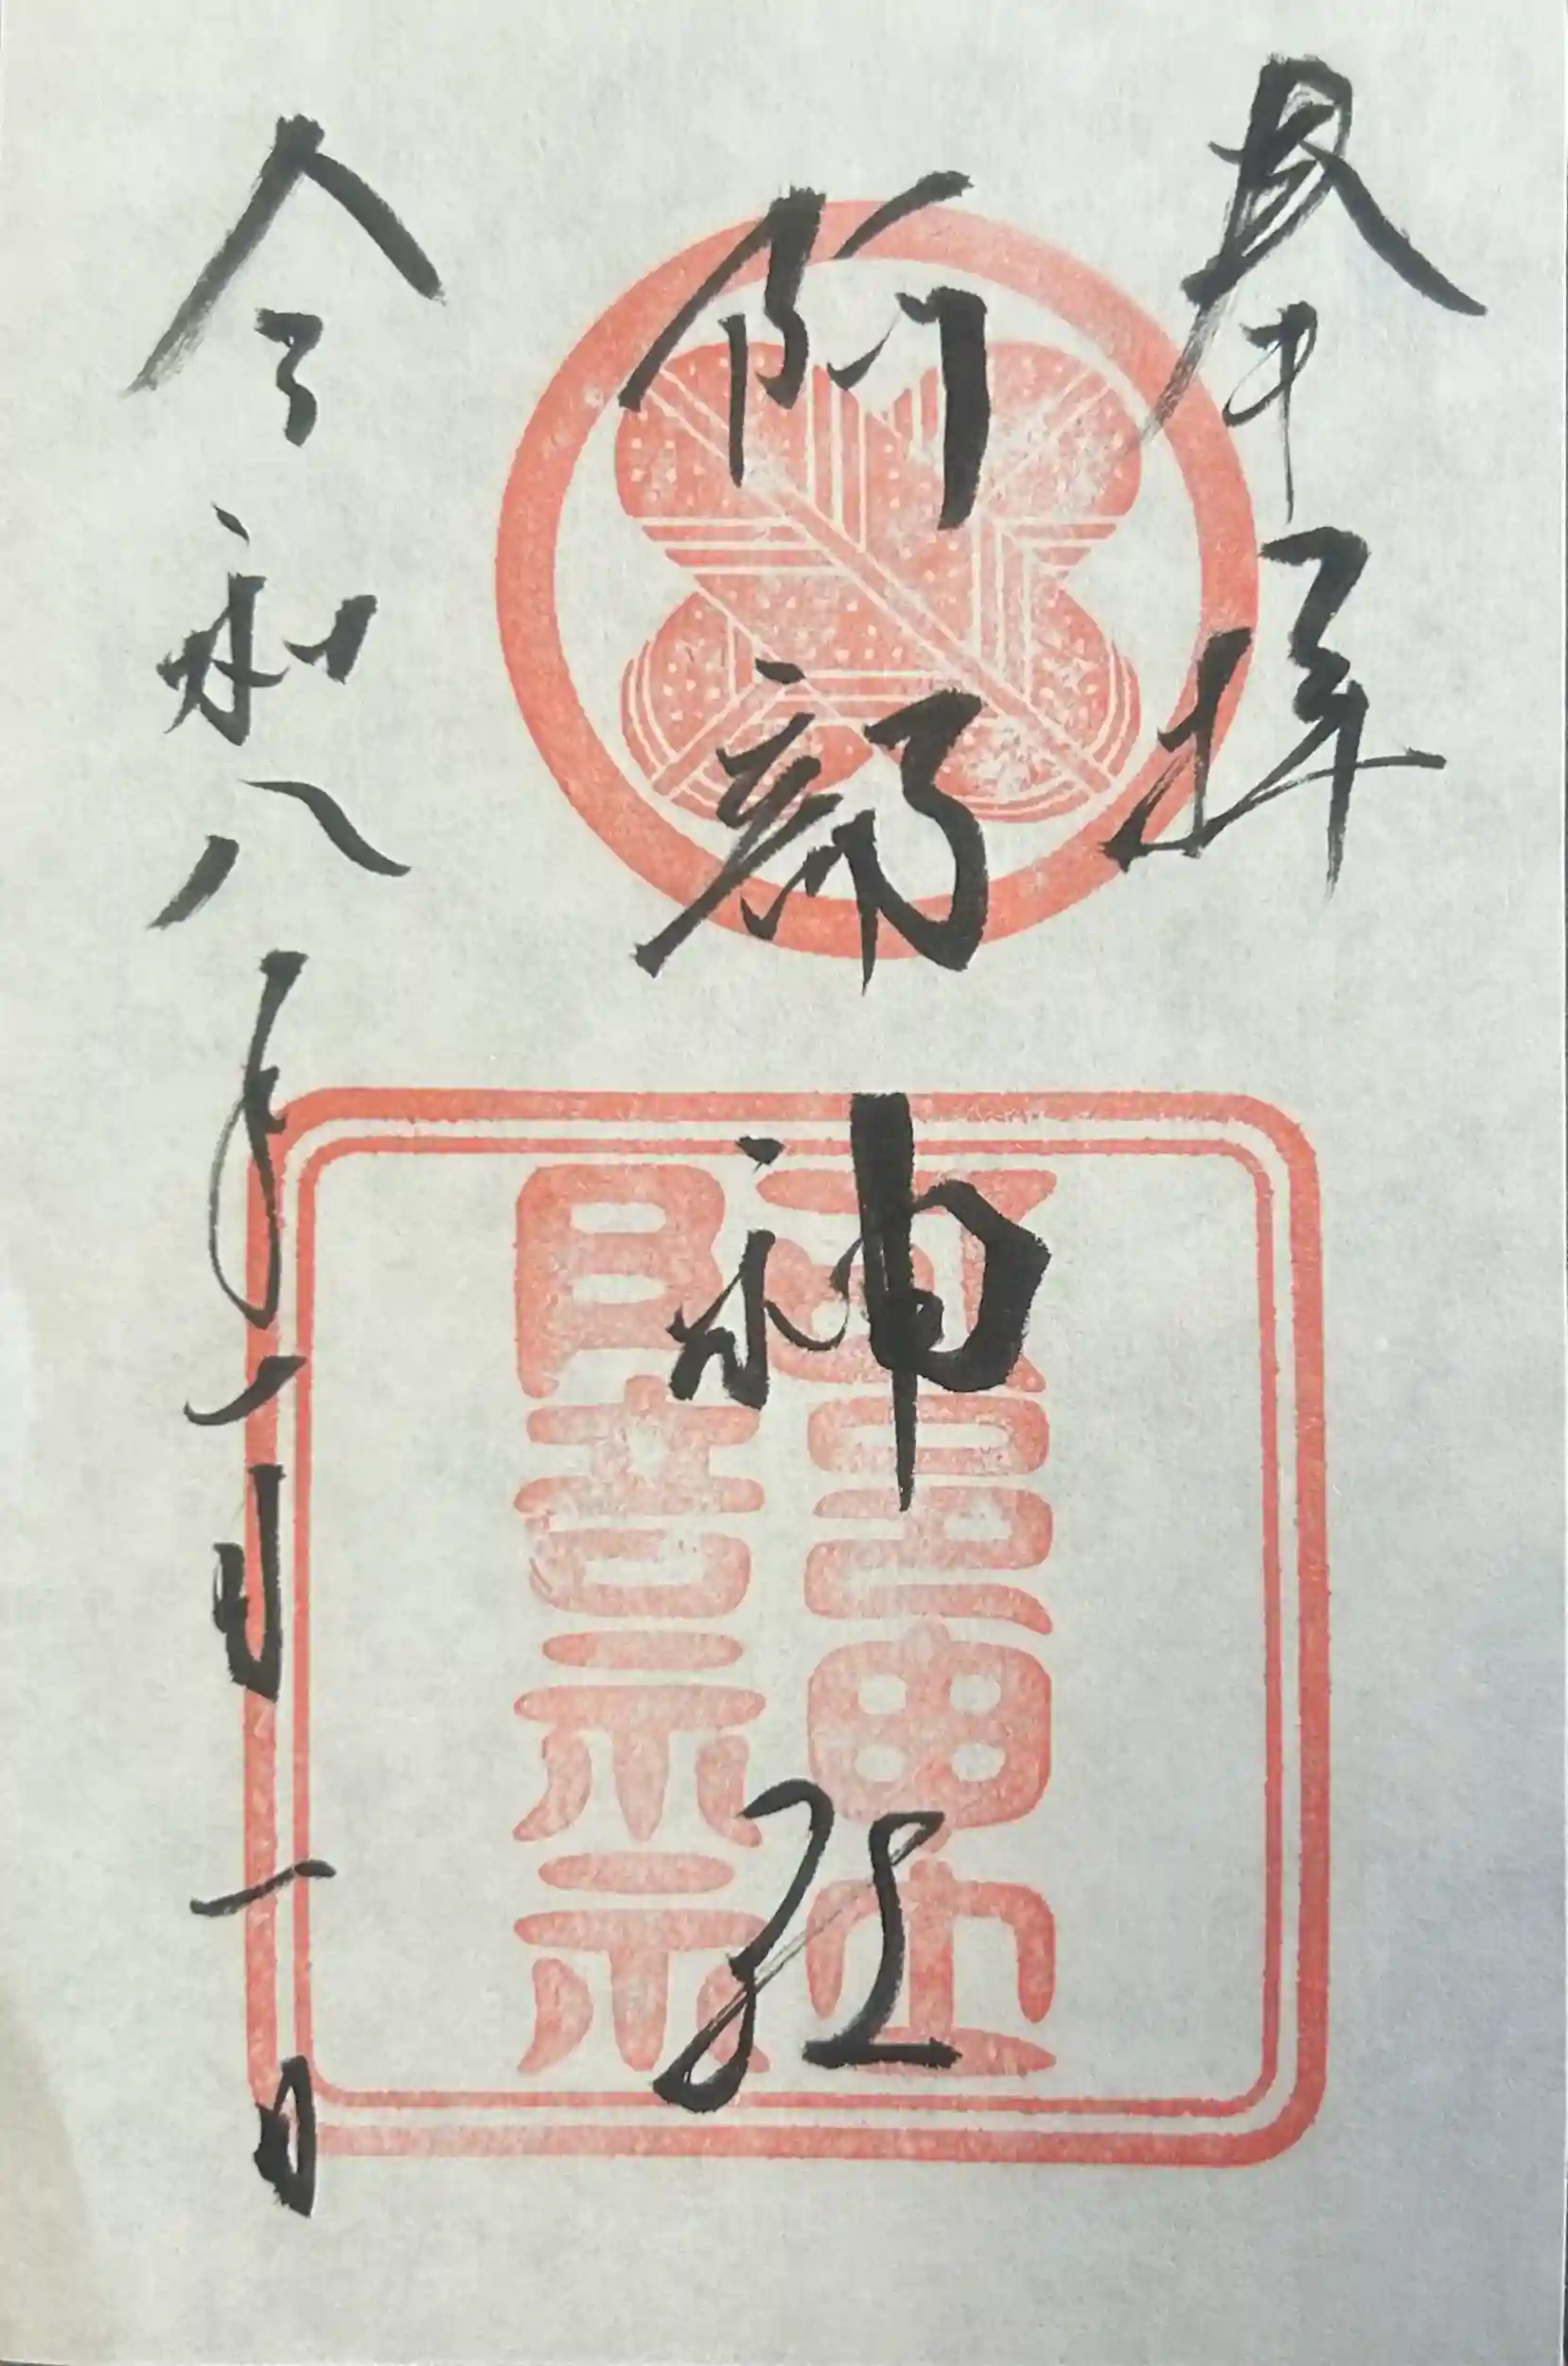 奉拝
阿部神社
令和八年一月一日
阿部神社